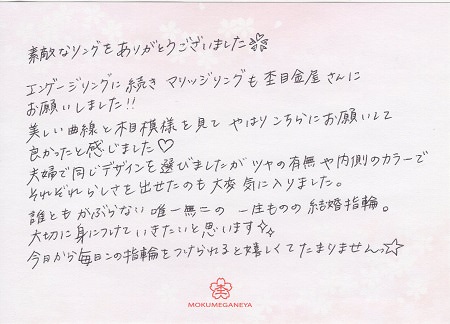 素敵なリングをありがとうございました
エンゲージリングに続き マリッジリングも 杢目金屋さんに
お願いしました!!
美しい曲線と木目模様を見て やはりこちらにお願いして
良かったと感じました♡
夫婦で同じデザインを選びましたがツヤの有無や内側のカラーで
それぞれらしさを出せたのも大変 気に入りました。
誰ともかぶらない 唯一無二の 一生ものの 結婚指輪。
大切に身につけていきたいと思います☆
今日から毎日この指輪をつけられると嬉しくてたまりませんっ☆
MOKUMEGANEYA